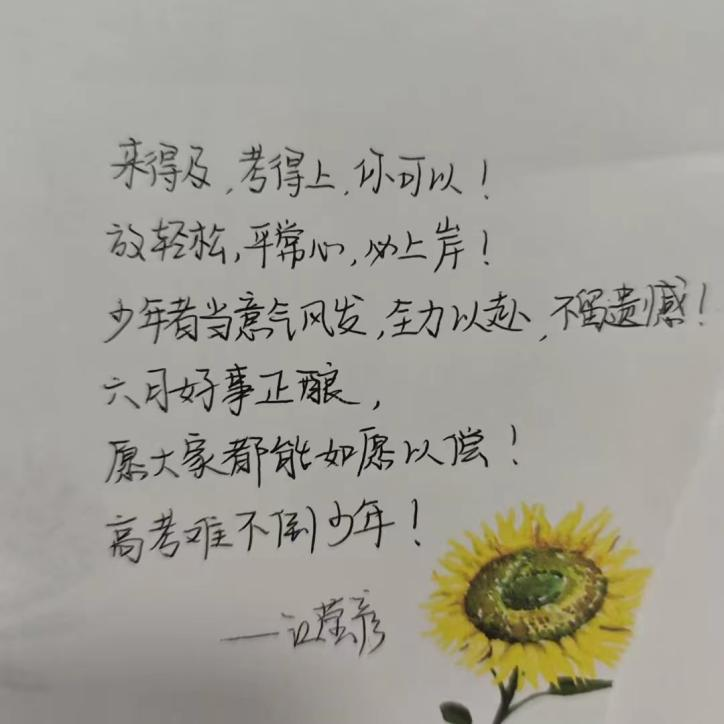 来得及,考得上,你可以!
放轻松,平常心,必上岸!
少年者当意气风发,全力以赴,不留遗憾!
六月好事正酿,
愿大家都能如愿以偿!
高考难不倒少年!
——江莹彦